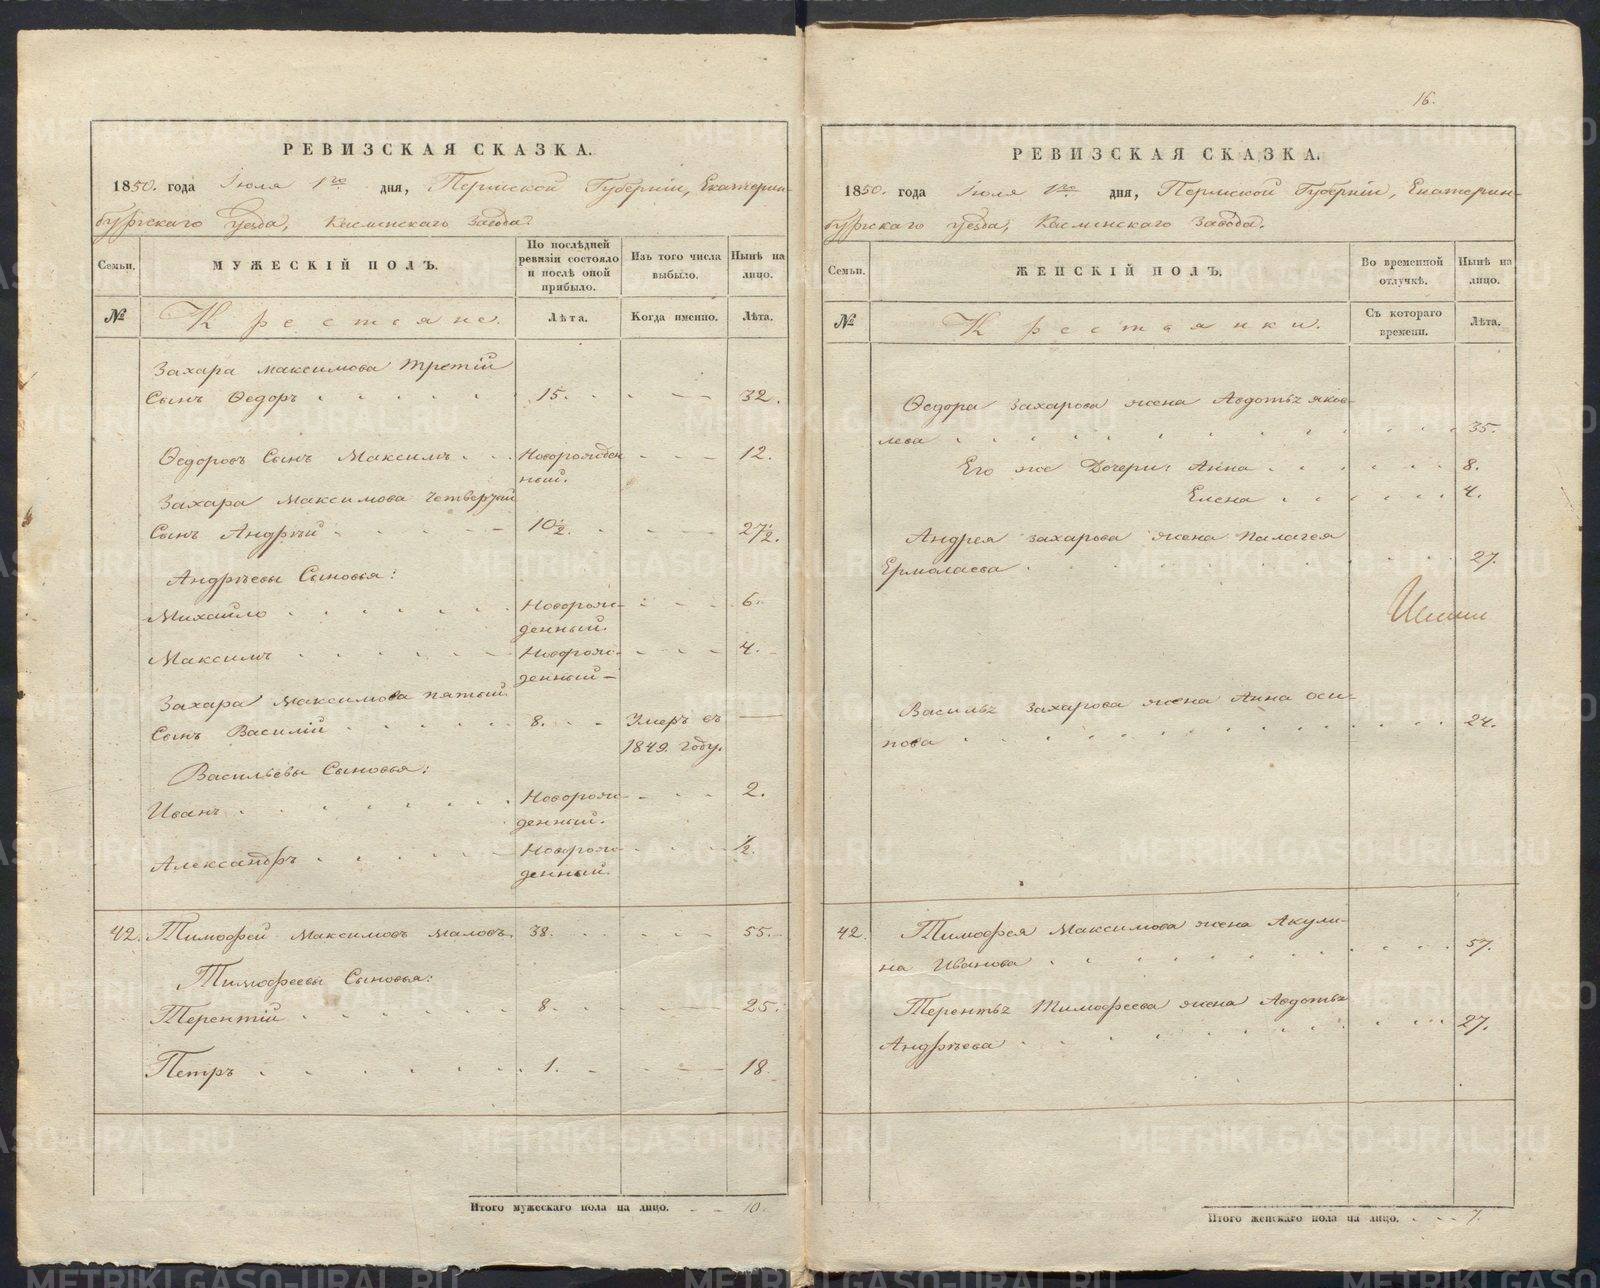 РЕВИЗСКАЯ СКАЗКА.
1850. года Іюля 1го. дня, Пермской Губерніи, Екатерин-
бургскаго Уезда, Каслинскаго Завода.
Семьи.
МУЖЕСКІЙ ПОЛЪ.
По послѣдней ревизіи состояло и послѣ оной прибыло.
Изъ того числа выбыло.
Нынѣ на лицо.
№
Крестьяне.
Лѣта.
Когда именно.
Лѣта.
Захара Максимова третій
Сынъ Ѳедоръ 15. 32.
Ѳедоровъ Сынъ Максимъ Новорожден 12.
ный.
Захара Максимова Четвертый
Сынъ Андрѣй 10½. 27½.
Андрѣевы Сыновья:
Михайло Новорож- 6.
денный.
Максимъ Новорож- 4.
денный
Захара Максимова пятый
Сынъ Василій 8. Умеръ въ
1849. году.
Васильевы Сыновья:
Иванъ Новорож- 2.
денный.
Александръ Новорож- ½.
денный.
42. Тимофей Максимовъ Маловъ 38. 55.
Тимофеевы Сыновья:
Терентій 8. 25.
Петръ 1. 18.
Итого мужескаго пола на лицо. 10.
16.
РЕВИЗСКАЯ СКАЗКА.
1850. года Іюля 1го. дня, Пермской Губерніи, Екатерин-
бургскаго уезда, Каслинскаго Завода.
Семьи.
ЖЕНСКІЙ ПОЛЪ.
Во временной отлучкѣ.
Нынѣ на лицо.
№
Крестьянки.
Съ котораго времени.
Лѣта.
Ѳедора Захарова жена Авдотья яков-
лева 35.
Его же Дочери: Анна 8.
Елена 4.
Андрея Захарова жена Палагея
Ермолаева 27.
Василья Захарова жена Анна оси-
пова 24.
42. Тимофея Максимова жена Акули-
на Иванова 57.
Терентья Тимофеева жена Авдотья
Андрѣева 27.
Итого женскаго пола на лицо. 7.
METRIKI.GASO-URAL.RU